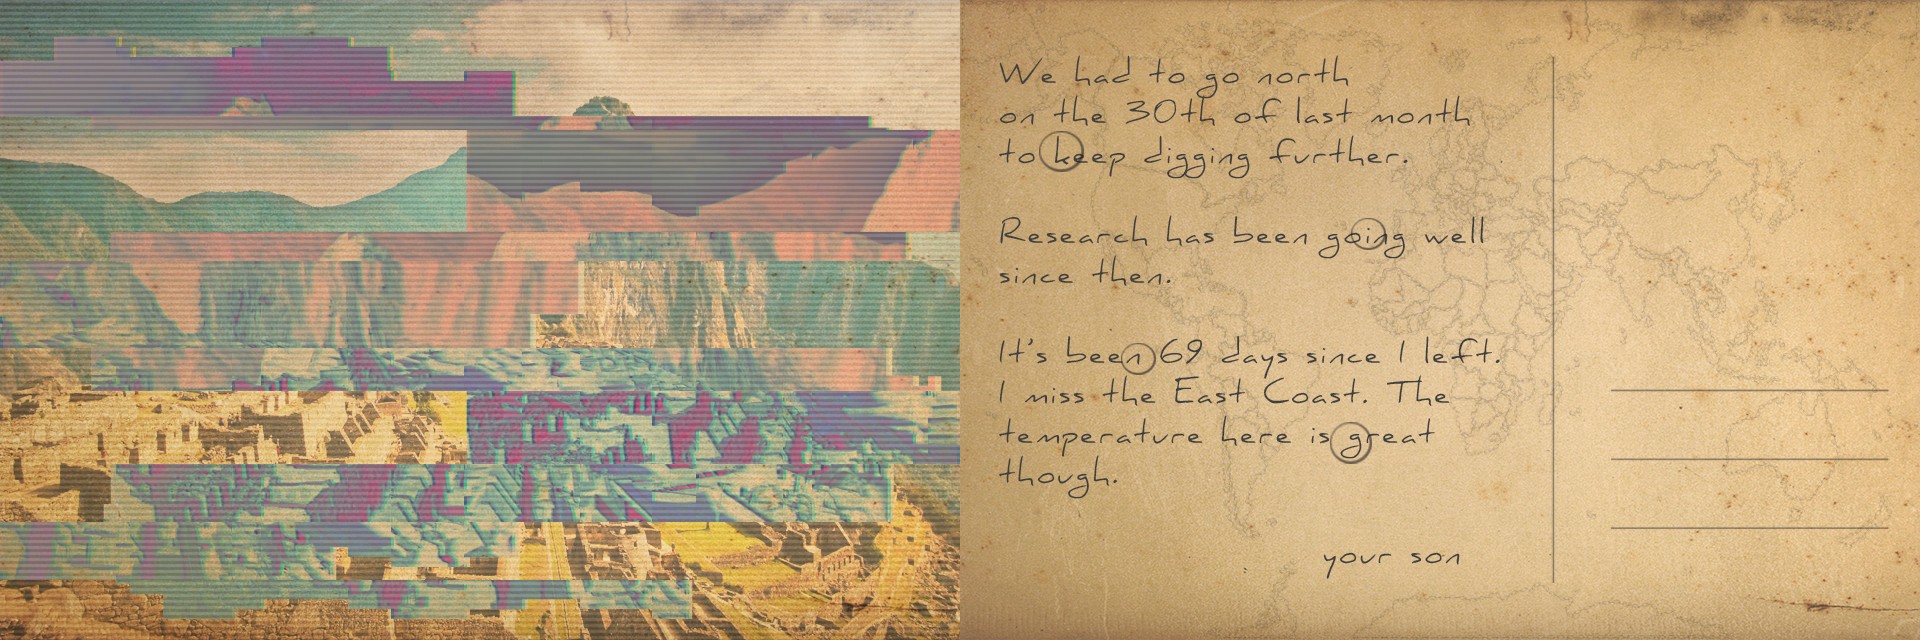 We had to go north
on the 30th of last month
to keep digging further.
Research has been going well
since then.
It's been 69 days since I left.
I miss the East Coast. The
temperature here is great
though.
your son